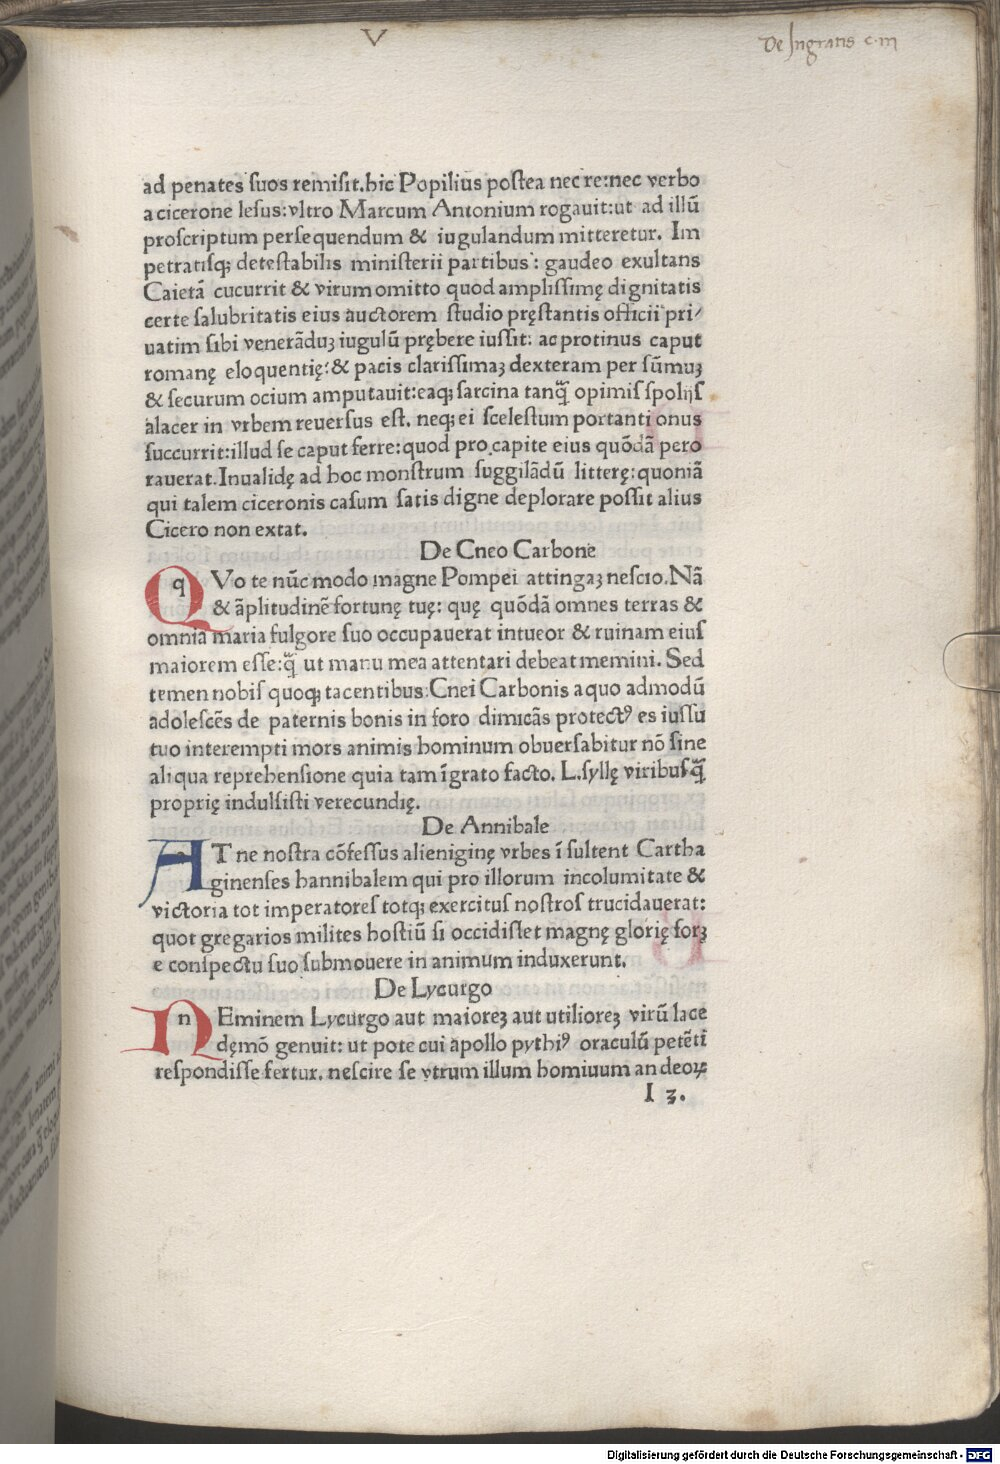 V
De Ingratis c. III
ad penates ſuos remiſit.hic Popilius poſtea nec re:nec verbo
a cicerone leſus:vltro Marcum Antonium rogauit:ut ad illū
proſcriptum perſequendum & iugulandum mitteretur. Im
petratiſqꝫ deteſtabilis miniſterii partibus: gaudeo exultans
Caietā cucurrit & virum omitto quod ampliſſimę dignitatis
certe ſalubritatis eius auctorem ſtudio pręſtantis officii pri/
uatim ſibi venerāduꝫ iugulū prębere iuſſit: ac protinus caput
romanę eloquentię:& pacis clariſſimaꝫ dexteram per ſūmuꝫ
& ſecurum ocium amputauit:eaqꝫ ſarcina tanq̄ opimiſ ſpolijſ
alacer in vrbem reuerſus eſt. neqꝫ ei ſceleſtum portanti onus
ſuccurrit:illud ſe caput ferre:quod pro capite eius quōdā pero
rauerat.Inualidę ad hoc monſtrum ſuggilādū litterę:quoniā
qui talem ciceronis caſum ſatis digne deplorare poſſit alius
Cicero non extat.
De Cneo Carbone
qVo te nūc modo magne Pompei attingaꝫ neſcio.Nā
& āplitudinē fortunę tuę: quę quōdā omnes terras &
omnia maria fulgore ſuo occupauerat intueor & ruinam eiuſ
maiorem eſſe:q̄ ut manu mea attentari debeat memini. Sed
temen nobiſ quoqꝫ tacentibus:Cnei Carbonis a quo admodū
adoleſcēs de paternis bonis in foro dimicās protectꝰ es iuſſu
tuo interempti mors animis hominum obuerſabitur nō ſine
aliqua reprehenſione quia tam īgrato facto. L.ſyllę viribuſq̄
proprię indulſiſti verecundię.
De Annibale
AT ne noſtra cōfeſſus alieniginę vrbes ī ſultent Cartha
ginenſes hannibalem qui pro illorum incolumitate &
victoria tot imperatoreſ totqꝫ exercituſ noſtroſ trucidauerat:
quot gregarios milites hoſtiū ſi occidiſſet magnę glorię forꝫ
e conſpectu ſuo ſubmouere in animum induxerunt.
De Lycurgo
nEminem Lycurgo aut maioreꝫ aut utilioreꝫ virū lace
dęmō genuit: ut pote cui apollo pythiꝰ oraculū petēti
reſpondiſſe fertur. neſcire ſe vtrum illum homiuum an deoꝝ
I 3.
Digitalisierung gefördert durch die Deutsche Forschungsgemeinschaft - DFG